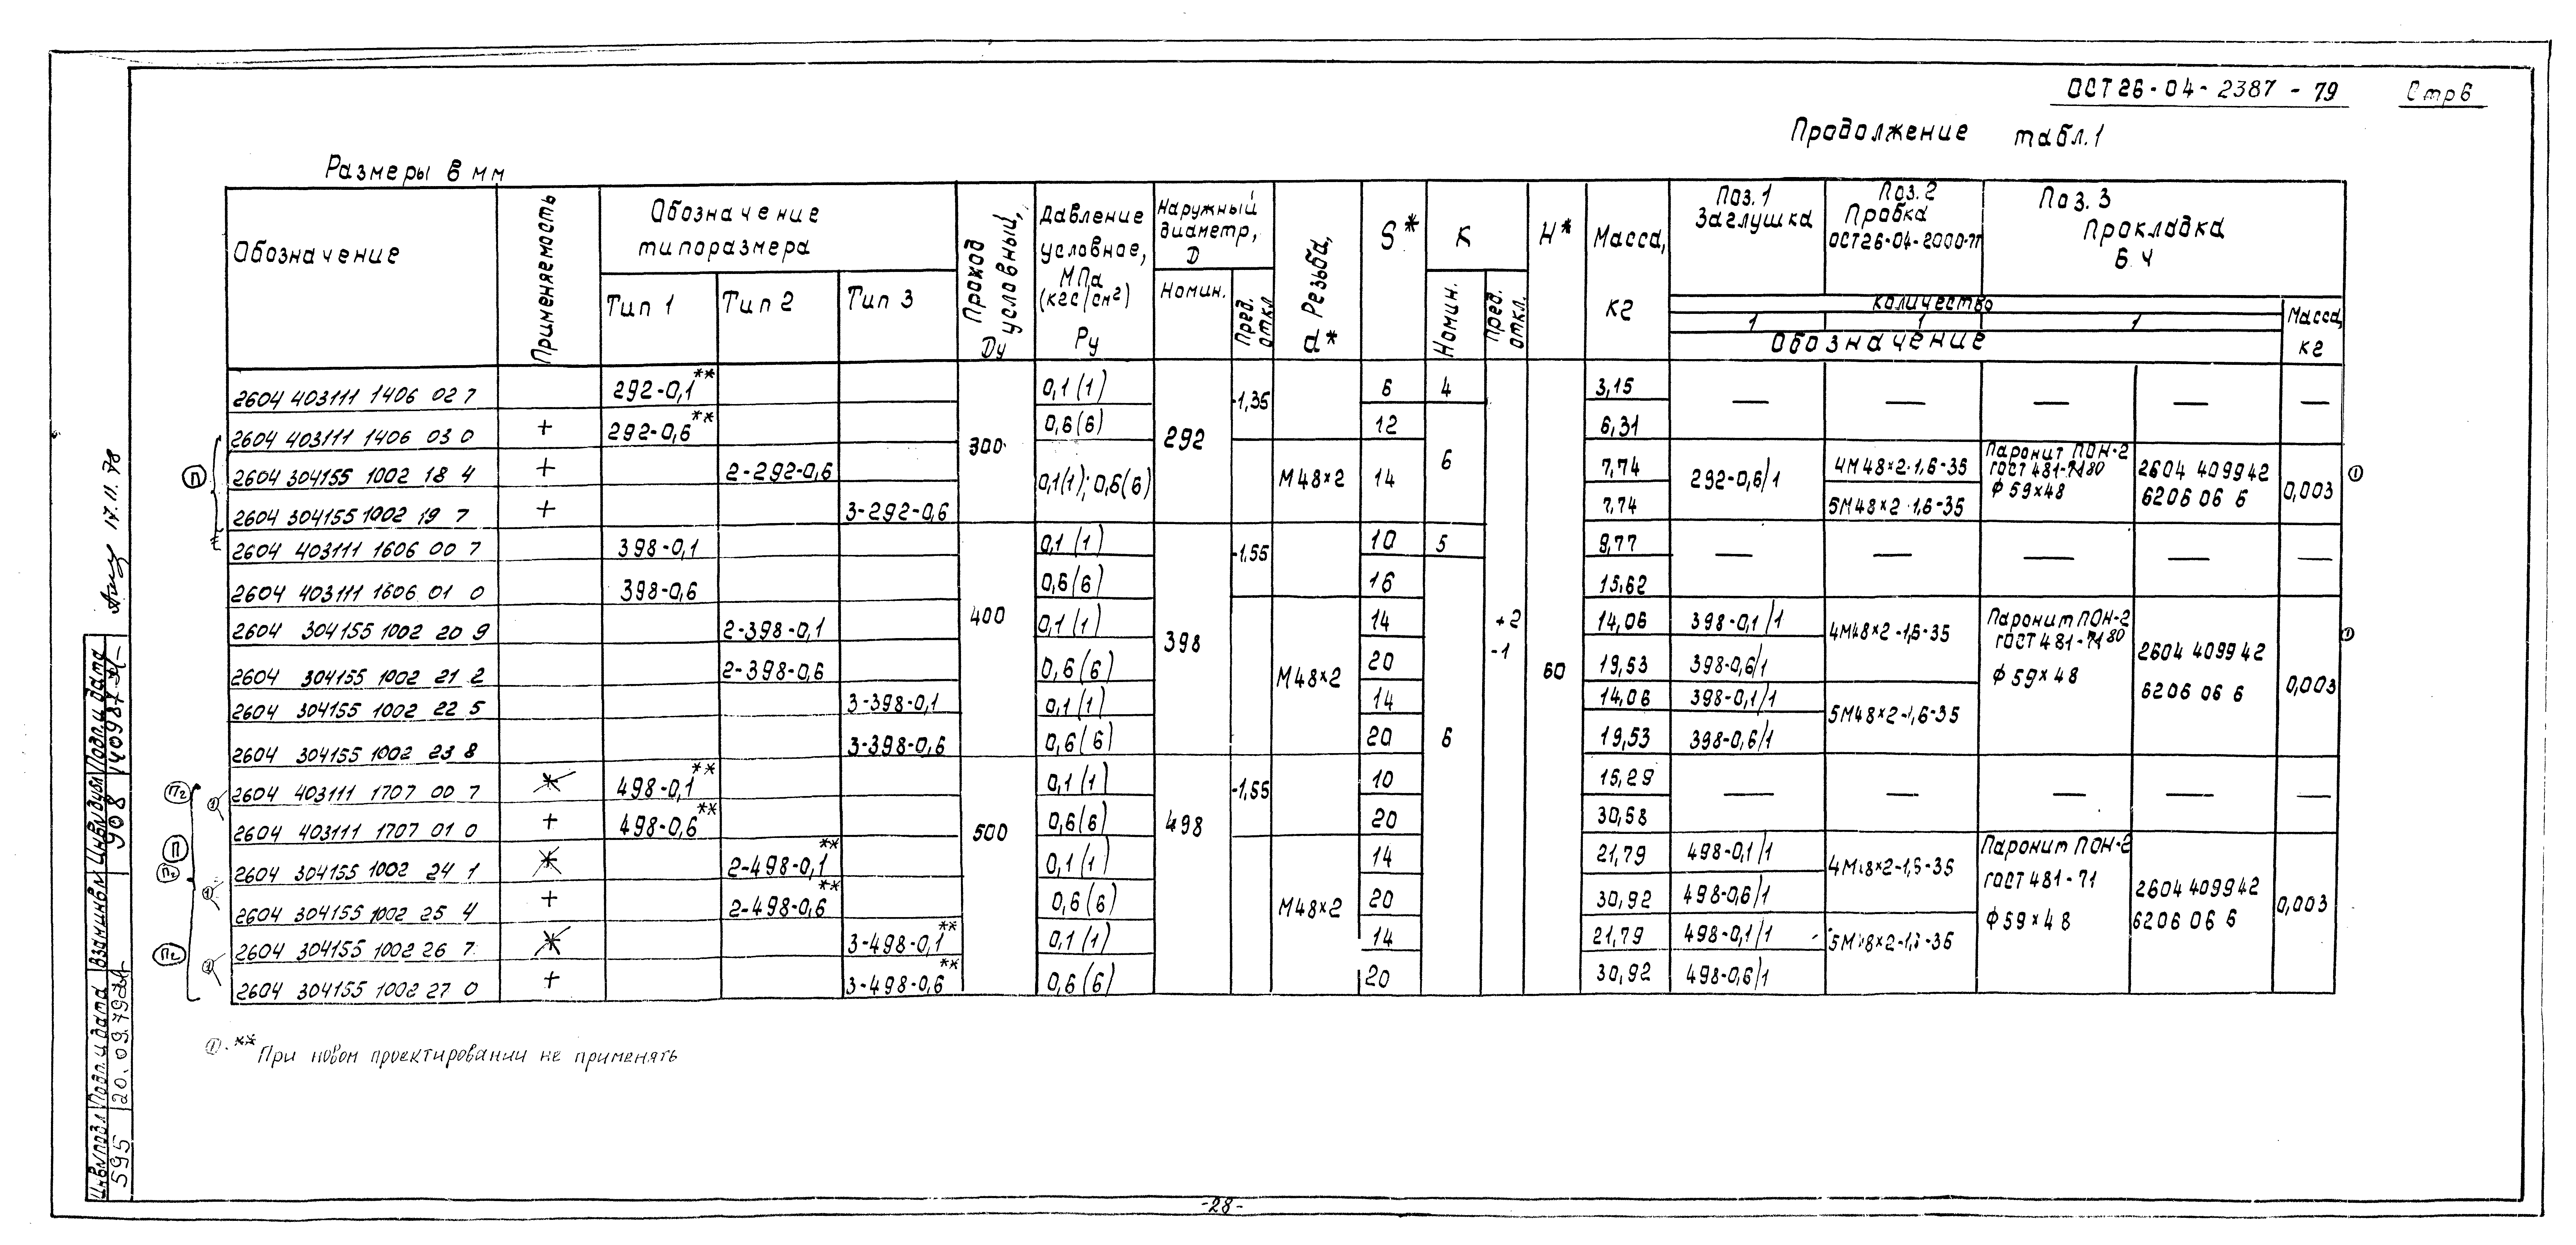 ОСТ26-04-2387-79 Стр6
Продолжение табл.1
Размеры в мм
Обозначение
Применяемость
Обозначение типоразмера
Тип 1
Тип 2
Тип 3
Проход условный, Dу
Давление условное, МПа (кгс/см²) Pу
Наружный диаметр, D
Номин.
Пред. откл
Резьба, d*
S*
K
Номин.
Пред. откл.
H*
Масса, кг
Поз.1 Заглушка
Поз.2 Пробка ОСТ26-04-2000-77
Поз.3 Прокладка Б.Ч
Количество
1 1 1
Обозначение
Масса, кг
2604 403111 1406 02 7 292-0,1** 300 0,1(1) 292 -1,35 6 4 3,15 — — — — —
2604 403111 1406 03 0 + 292-0,6** 0,6(6) 12 6 6,31
2604 304155 1002 18 4 + 2-292-0,6 0,1(1); 0,6(6) М48×2 14 7,74 292-0,6/1 4М48×2-1,6-35 Паронит ПОН-2 ГОСТ 481-7180 ф59×48 2604 409942 6206 06 6 0,003 ①
2604 304155 1002 19 7 + 3-292-0,6 7,74 5М48×2-1,6-35
2604 403111 1606 00 7 398-0,1 400 0,1(1) 398 -1,55 10 5 9,77 — — — — —
2604 403111 1606 01 0 398-0,6 0,6(6) 16 15,62
2604 304155 1002 20 9 2-398-0,1 0,1(1) М48×2 14 6 +2 -1 60 14,06 398-0,1/1 4М48×2-1,6-35 Паронит ПОН-2 ГОСТ 481-7180 ф59×48 2604 409942 6206 06 6 0,003 ①
2604 304155 1002 21 2 2-398-0,6 0,6(6) 20 19,53 398-0,6/1
2604 304155 1002 22 5 3-398-0,1 0,1(1) 14 14,06 398-0,1/1 5М48×2-1,6-35
2604 304155 1002 23 8 3-398-0,6 0,6(6) 20 19,53 398-0,6/1
2604 403111 1707 00 7 498-0,1** 500 0,1(1) 498 -1,55 10 15,29 — — — — —
2604 403111 1707 01 0 + 498-0,6** 0,6(6) 20 30,58
2604 304155 1002 24 1 2-498-0,1** 0,1(1) М48×2 14 21,79 498-0,1/1 4М48×2-1,6-35 Паронит ПОН-2 ГОСТ 481-71 ф59×48 2604 409942 6206 06 6 0,003
2604 304155 1002 25 4 + 2-498-0,6** 0,6(6) 20 30,92 498-0,6/1
2604 304155 1002 26 7 3-498-0,1** 0,1(1) 14 21,79 498-0,1/1 5М48×2-1,6-35
2604 304155 1002 27 0 + 3-498-0,6** 0,6(6) 20 30,92 498-0,6/1
П
П2
П
П2
П2
①.** При новом проектировании не применять
17.11.78
Инв№подл Подп. и дата Взам.инв№ Инв№дубл Подп. и дата
595 20.09.79 908
-28-